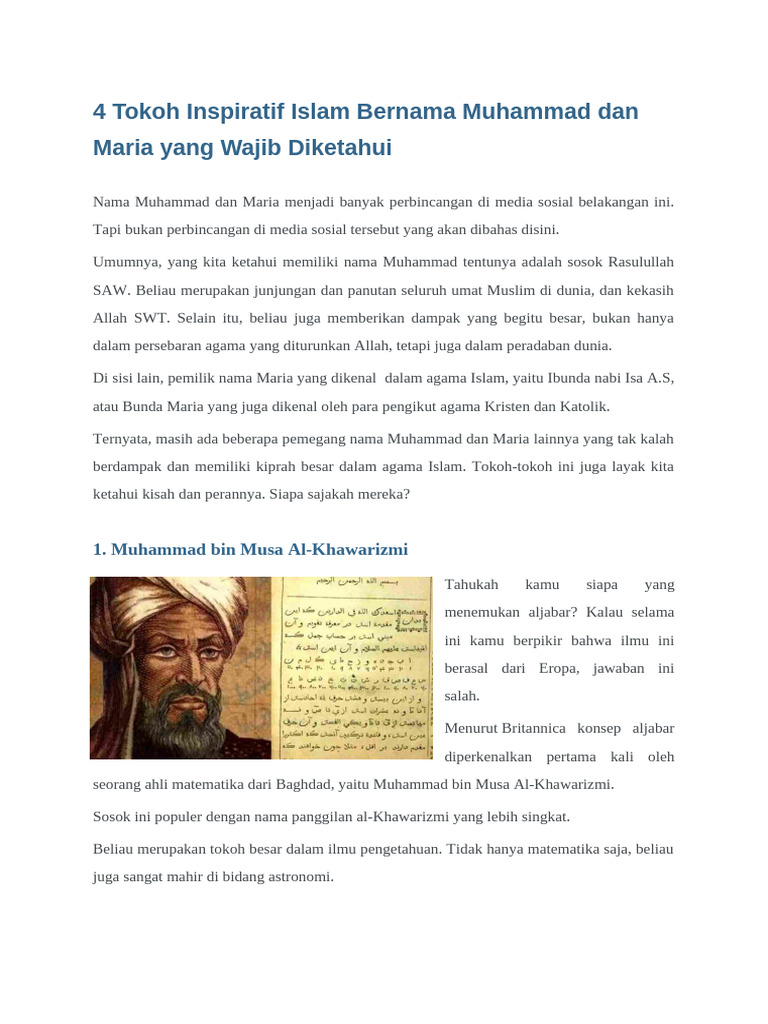 4 Tokoh Inspiratif Islam Bernama Muhammad dan
Maria yang Wajib Diketahui
Nama Muhammad dan Maria menjadi banyak perbincangan di media sosial belakangan ini.
Tapi bukan perbincangan di media sosial tersebut yang akan dibahas disini.
Umumnya, yang kita ketahui memiliki nama Muhammad tentunya adalah sosok Rasulullah
SAW. Beliau merupakan junjungan dan panutan seluruh umat Muslim di dunia, dan kekasih
Allah SWT. Selain itu, beliau juga memberikan dampak yang begitu besar, bukan hanya
dalam persebaran agama yang diturunkan Allah, tetapi juga dalam peradaban dunia.
Di sisi lain, pemilik nama Maria yang dikenal  dalam agama Islam, yaitu Ibunda nabi Isa A.S,
atau Bunda Maria yang juga dikenal oleh para pengikut agama Kristen dan Katolik.
Ternyata, masih ada beberapa pemegang nama Muhammad dan Maria lainnya yang tak kalah
berdampak dan memiliki kiprah besar dalam agama Islam. Tokoh-tokoh ini juga layak kita
ketahui kisah dan perannya. Siapa sajakah mereka?
1. Muhammad bin Musa Al-Khawarizmi
بسم الله الرحمن الرحيم
Tahukah kamu siapa yang
menemukan aljabar? Kalau selama
ini kamu berpikir bahwa ilmu ini
berasal dari Eropa, jawaban ini
salah.
Menurut Britannica konsep aljabar
diperkenalkan pertama kali oleh
seorang ahli matematika dari Baghdad, yaitu Muhammad bin Musa Al-Khawarizmi.
Sosok ini populer dengan nama panggilan al-Khawarizmi yang lebih singkat.
Beliau merupakan tokoh besar dalam ilmu pengetahuan. Tidak hanya matematika saja, beliau
juga sangat mahir di bidang astronomi.